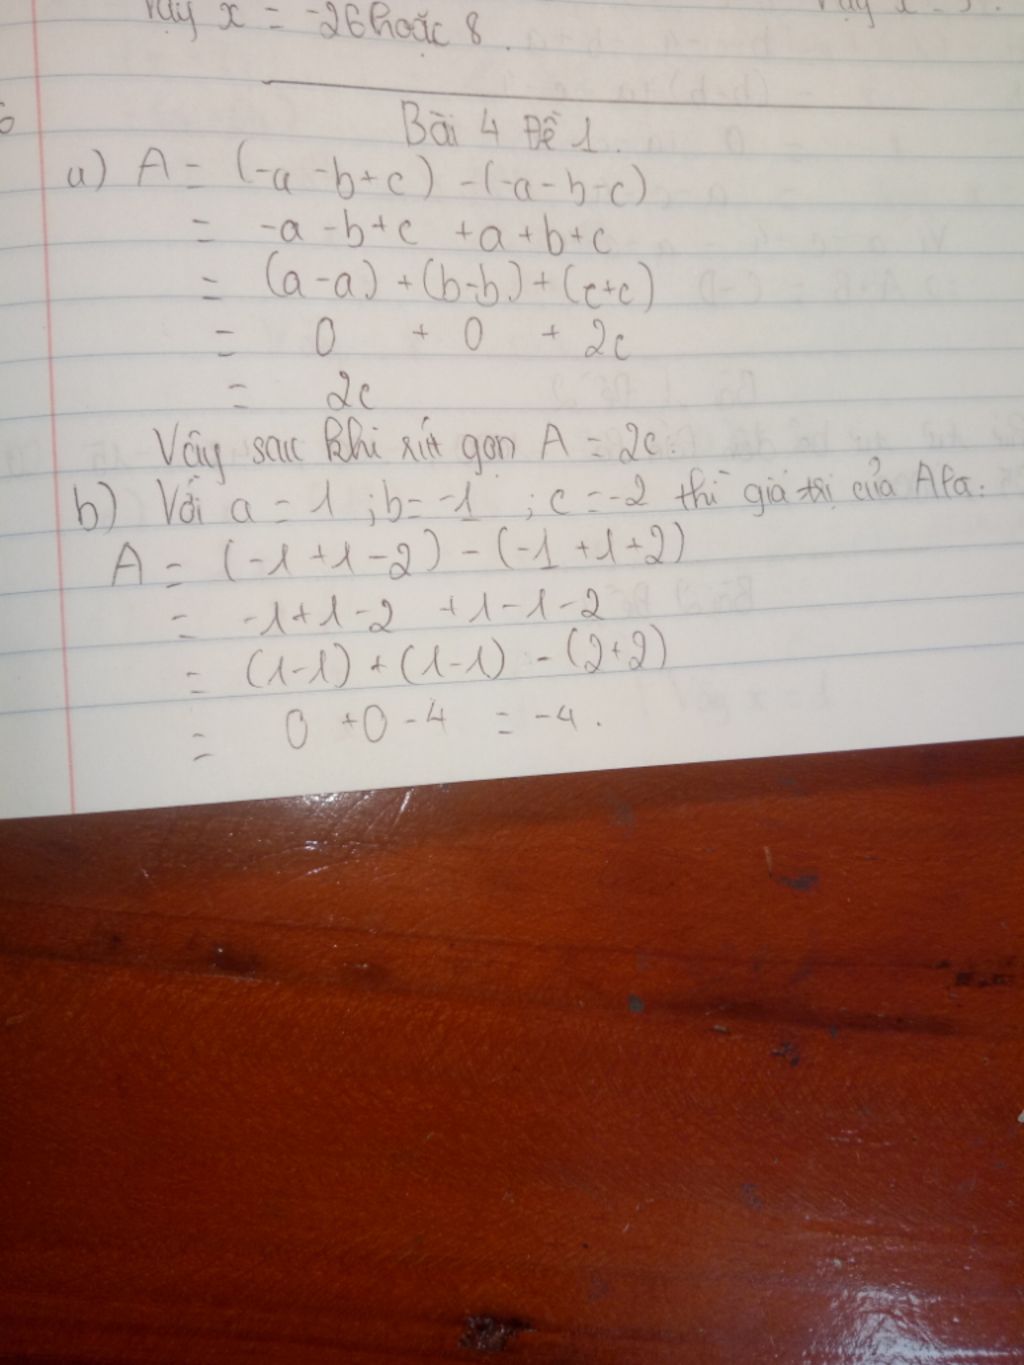 Vậy x = -26 hoặc 8.
Bài 4 Đề 1.
a) A = (-a - b + c) - (-a - b - c)
= -a - b + c + a + b + c
= (a - a) + (b - b) + (c + c)
= 0 + 0 + 2c
= 2c
Vậy sau khi rút gọn A = 2c.
b) Với a = 1 ; b = -1 ; c = -2 thì giá trị của A là:
A = (-1 + 1 - 2) - (-1 + 1 + 2)
= -1 + 1 - 2 + 1 - 1 - 2
= (1 - 1) + (1 - 1) - (2 + 2)
= 0 + 0 - 4 = -4.